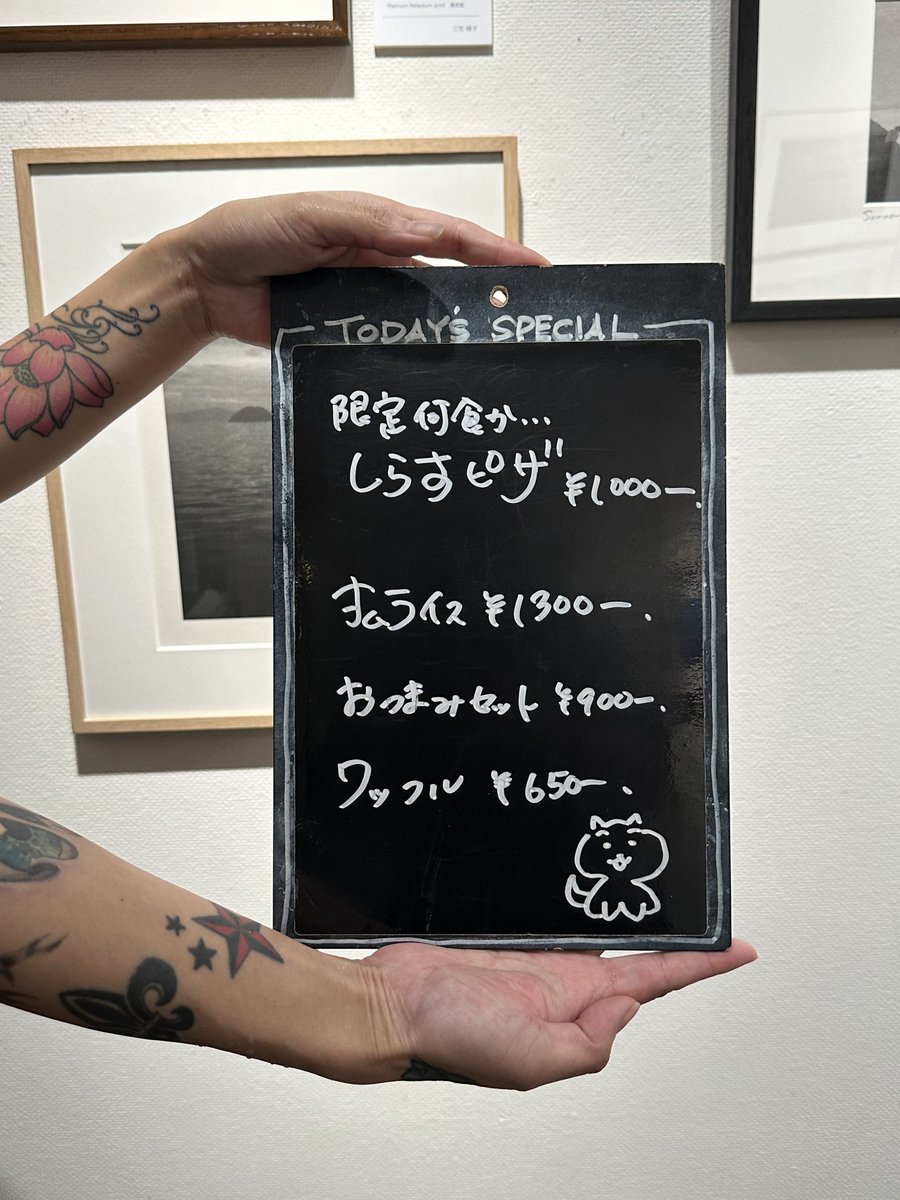 Platinum Palladium print
TODAY'S SPECIAL
限定何食か...
しらすピザ ¥1000ー.
オムライス ¥1300ー.
おつまみセット ¥900ー.
ワッフル ¥650ー.